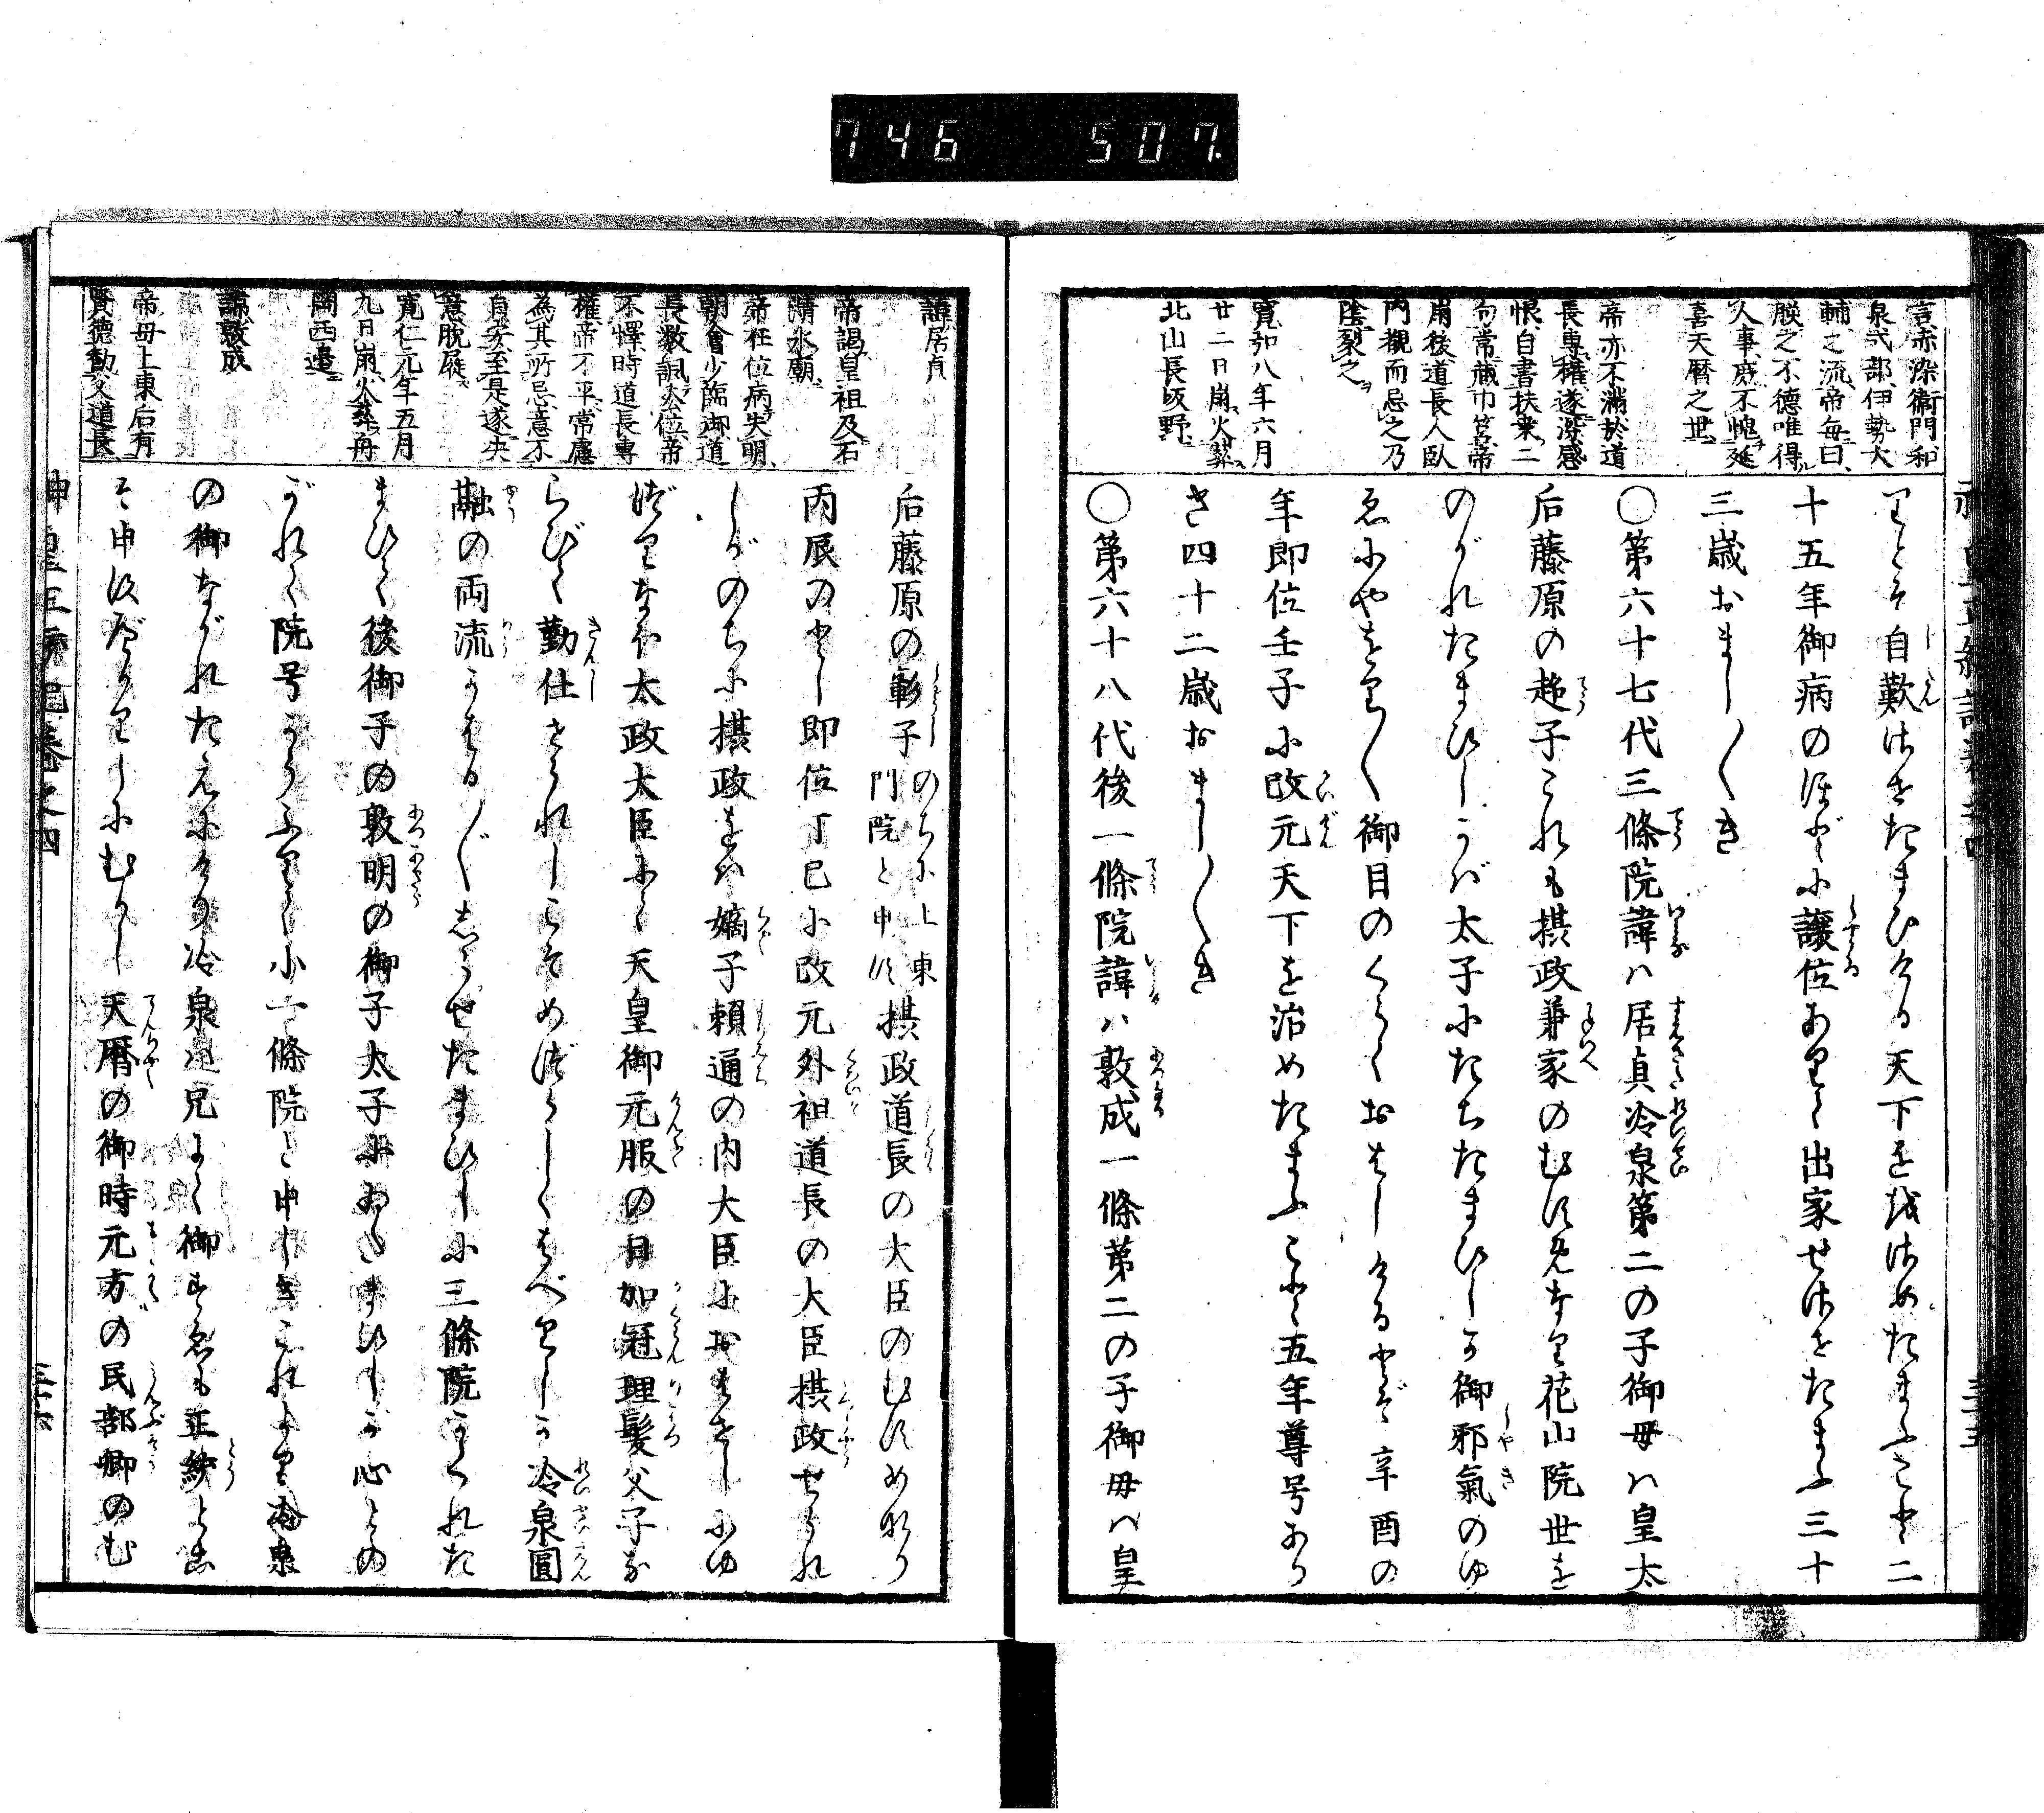 746 507.
言赤染衛門和
泉式部伊勢大
輔之流帝毎曰
朕之不徳唯得
人事庶不愧延
喜天暦之世
帝亦不満於道
長専権遂深感
恨自書扶桑二
句常蔵巾笥帝
崩後道長入臥
内覩而忌之乃
陰裂之
寛弘八年六月
廿二日崩火葬
北山長坂野
りとそ自歎ませたまひける天下を治めたまふこと二
十五年御病のほどに譲位ありて出家せさせたまふ三十
三歳おまし〳〵き
○第六十七代三條院諱ハ居貞冷泉第二の子御母ハ皇太
后藤原の超子これも摂政兼家のむすめなり花山院世を
のがれたまひしかバ太子にたちたまひしが御邪氣のゆ
ゑにやをり〳〵御目のくらくおはしけるとぞ辛酉の
年即位壬子に改元天下を治めたまふこと五年尊号あり
き四十二歳おまし〳〵き
○第六十八代後一條院諱ハ敦成一條第二の子御母ハ皇
諱居貞
帝謁皇祖及石
清水廟
帝在位病失明
朝會少臨御道
長数諷令位帝
不懌時道長専
権帝不平常慮
為其所忌意不
自安至是遂失
意脱屣
寛仁元年五月
九日崩火葬舟
岡西邉
諱敦成
帝母上東后有
賢徳勤父道長
后藤原の彰子のちに上東門院と申す摂政道長の大臣のむすめなり
丙辰のとし即位丁巳に改元外祖道長の大臣摂政せられ
しがのちに摂政をバ嫡子頼通の内大臣におはせしにゆ
づりなほ太政大臣にて天皇御元服の日加冠理髪父子な
らびて勤仕せられしこそめづらしくはべりしか冷泉圓
融の両流かはる〴〵しらせたまひしに三條院かくれた
まひて後御子の敦明の御子太子にゐたまひしが心との
がれて院号かうふりて小一條院と申しきこれより冷泉
の御ながれたえにけり冷泉ハ兄にて御すゑも正統とこ
そ申すべかりしにむかし天暦の御時元方の民部卿のむ